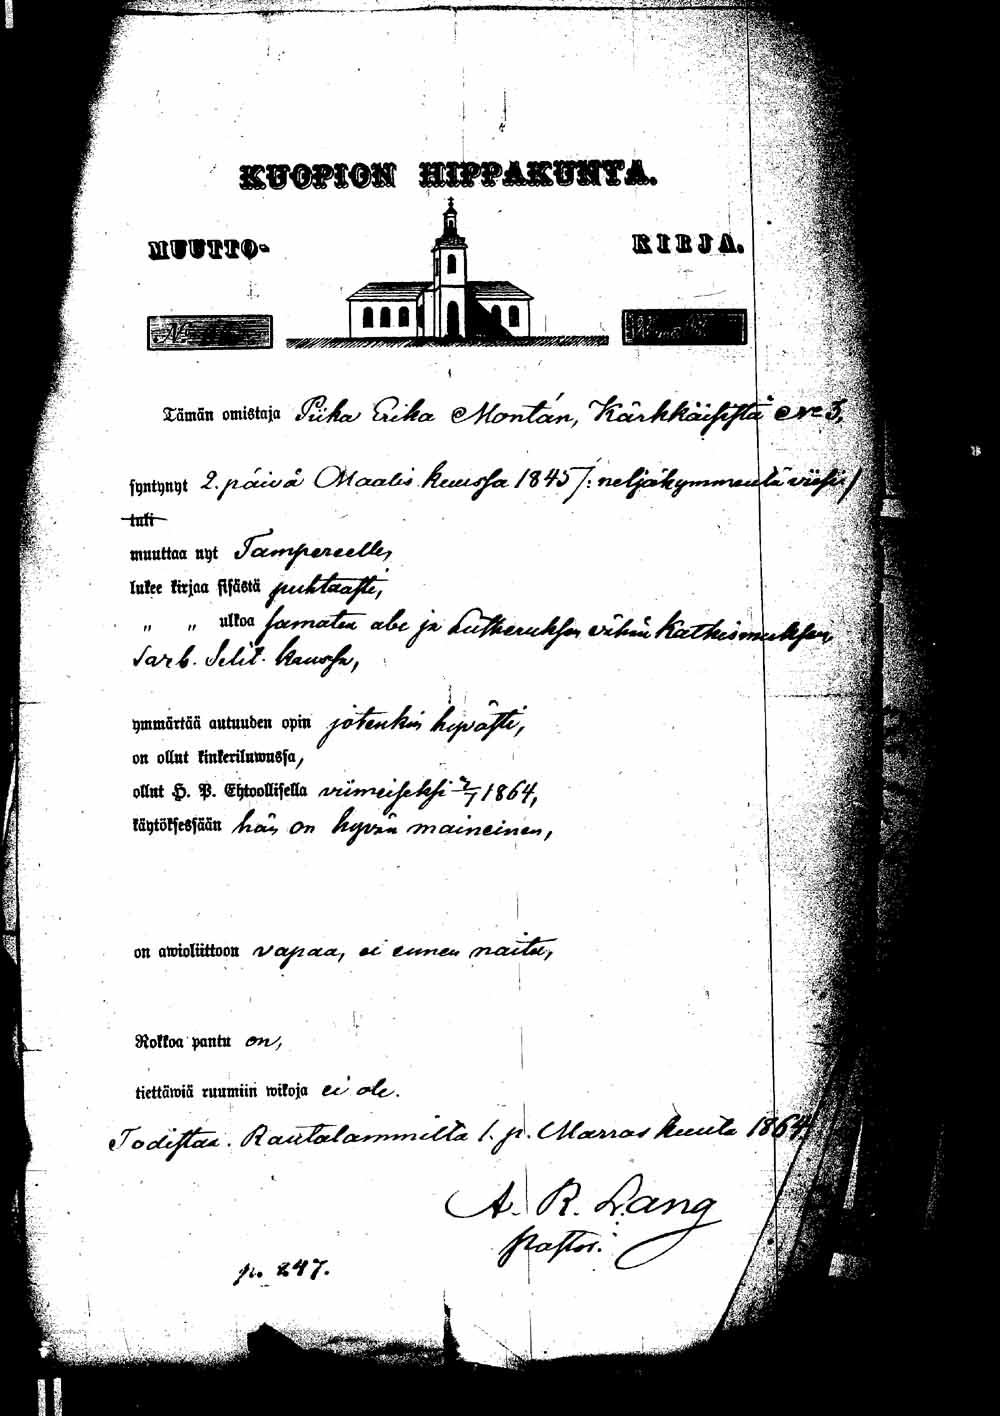 KUOPION HIPPAKUNTA.
MUUTTO- KIRJA.
N:
Tämän omistaja Piika Erika Montán, Kärkkäisistä No 3,
syntynyt 2. päivä Maalis kuussa 1845 /: neljäkymmentä viisi :/
tuli
muuttaa nyt Tampereelle,
lukee kirjaa sisästä puhtaasti,
„ „ ulkoa samaten abc ja Lutheruksen vähän Kathismuksen
Sarb. Selit. kanssa,
ymmärtää autuuden opin jotenkin hyvästi,
on ollut kinkeriluwussa,
ollut H. P. Ehtoollisella viimeiseksi 1864,
käytöksessään hän on hyvän maineinen,
on awioliittoon vapaa, ei ennen naitu,
Rokkoa pantu on,
tiettäwiä ruumiin wikoja ei ole.
Todistaa. Rautalammilta 1. p. Marras kuuta 1864.
A. R. Lang
Pastor.
p. 247.